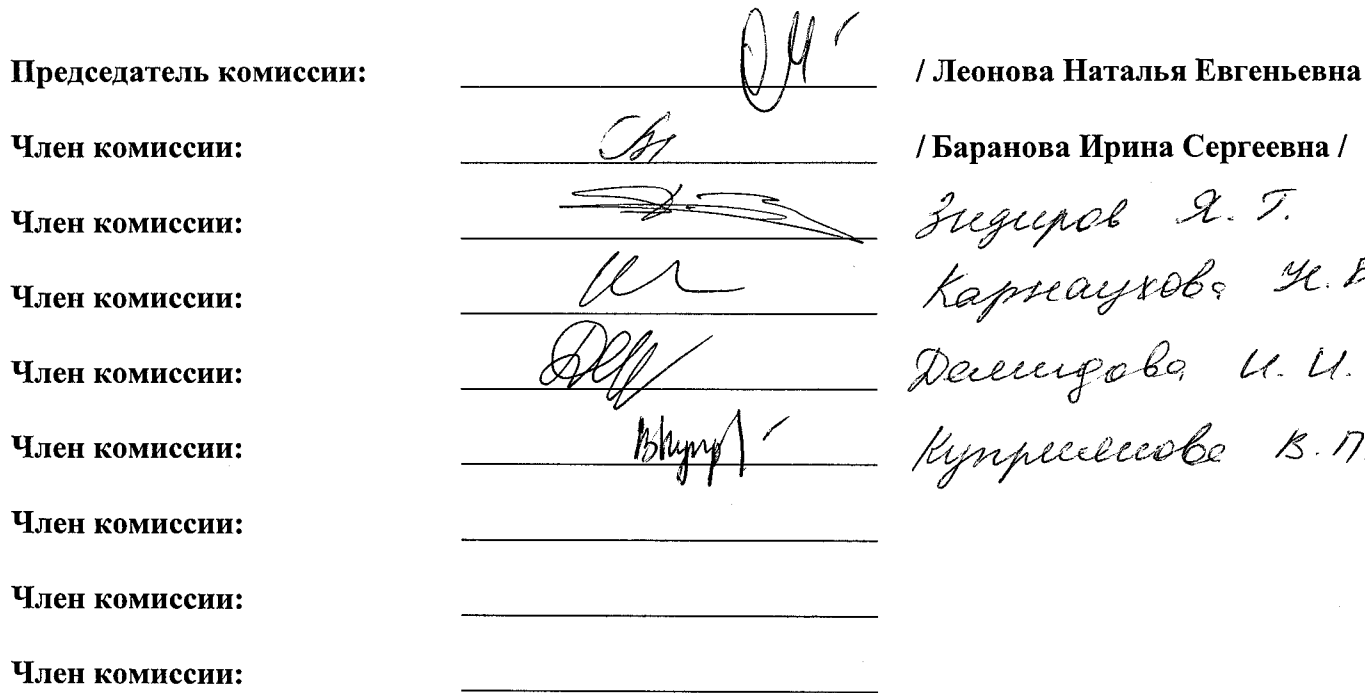 Председатель комиссии: / Леонова Наталья Евгеньевна
Член комиссии: / Баранова Ирина Сергеевна /
Член комиссии: Зидиров Я. Т.
Член комиссии: Карнаухова Н.
Член комиссии: Демидова И. И.
Член комиссии: В Купр Куприянова В. П.
Член комиссии:
Член комиссии:
Член комиссии: